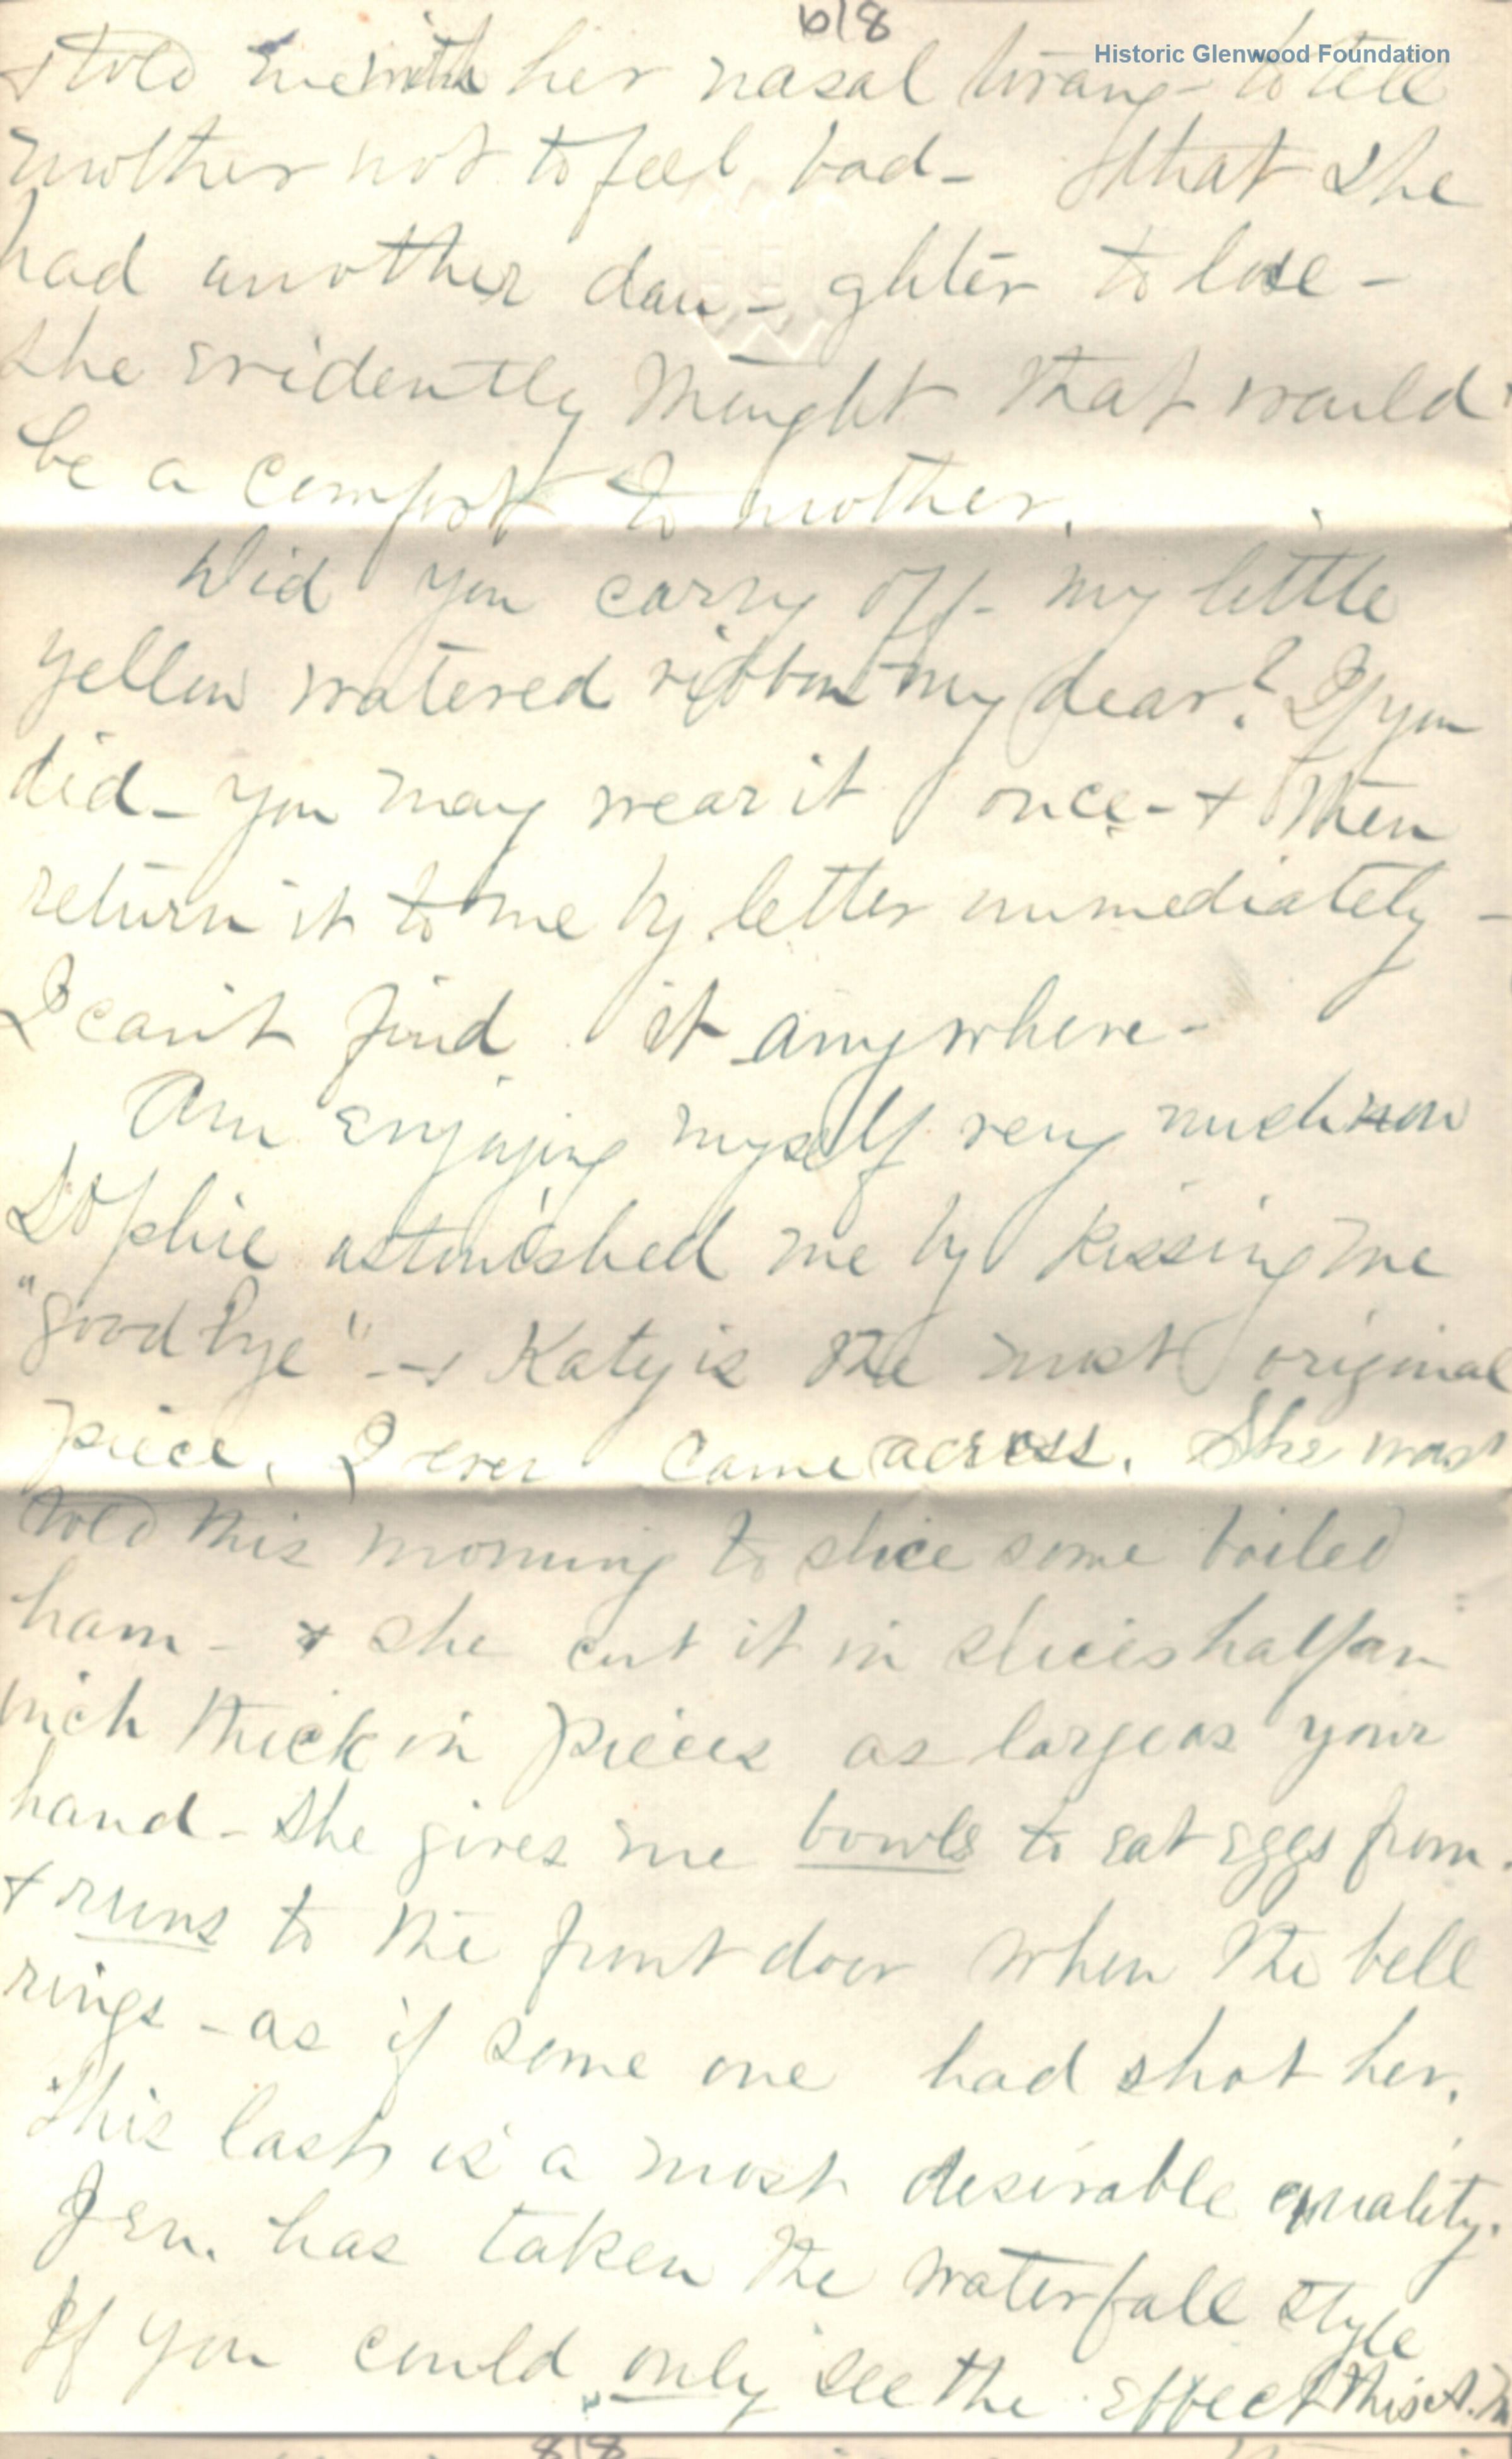 6/8
Historic Glenwood Foundation
& told me with her nasal twang - to tell
mother not to feel bad - that she
had another dau - ghter to lose -
she evidently thought that would
be a comfort to mother.
Did you carry off - my little
yellow watered ribbon my dear? If you
did - you may wear it once - & then
return it to me by letter immediately -
I can't find it anywhere -
Am enjoying myself very much now
Sophie astonished me by kissing me
"good bye" - & Katy is the most original
piece, I ever came across. She was
told this morning to slice some boiled
ham - & she cut it in slices half an
inch thick in pieces as large as your
hand - She gives me bowls to eat eggs from.
& runs to the front door when the bell
rings - as if some one had shot her.
This last is a most desirable quality.
Jen. has taken the waterfall style
If you could only see the effect this A.M
8/8